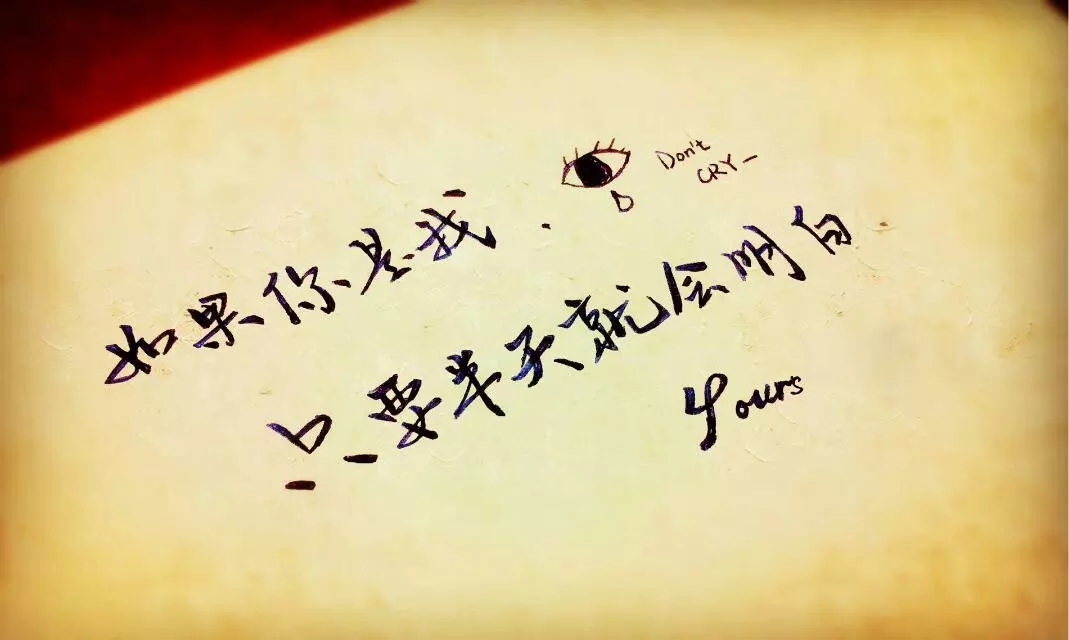 Don't
CRY-
如果你是我.
只要半天就会明白.
yours